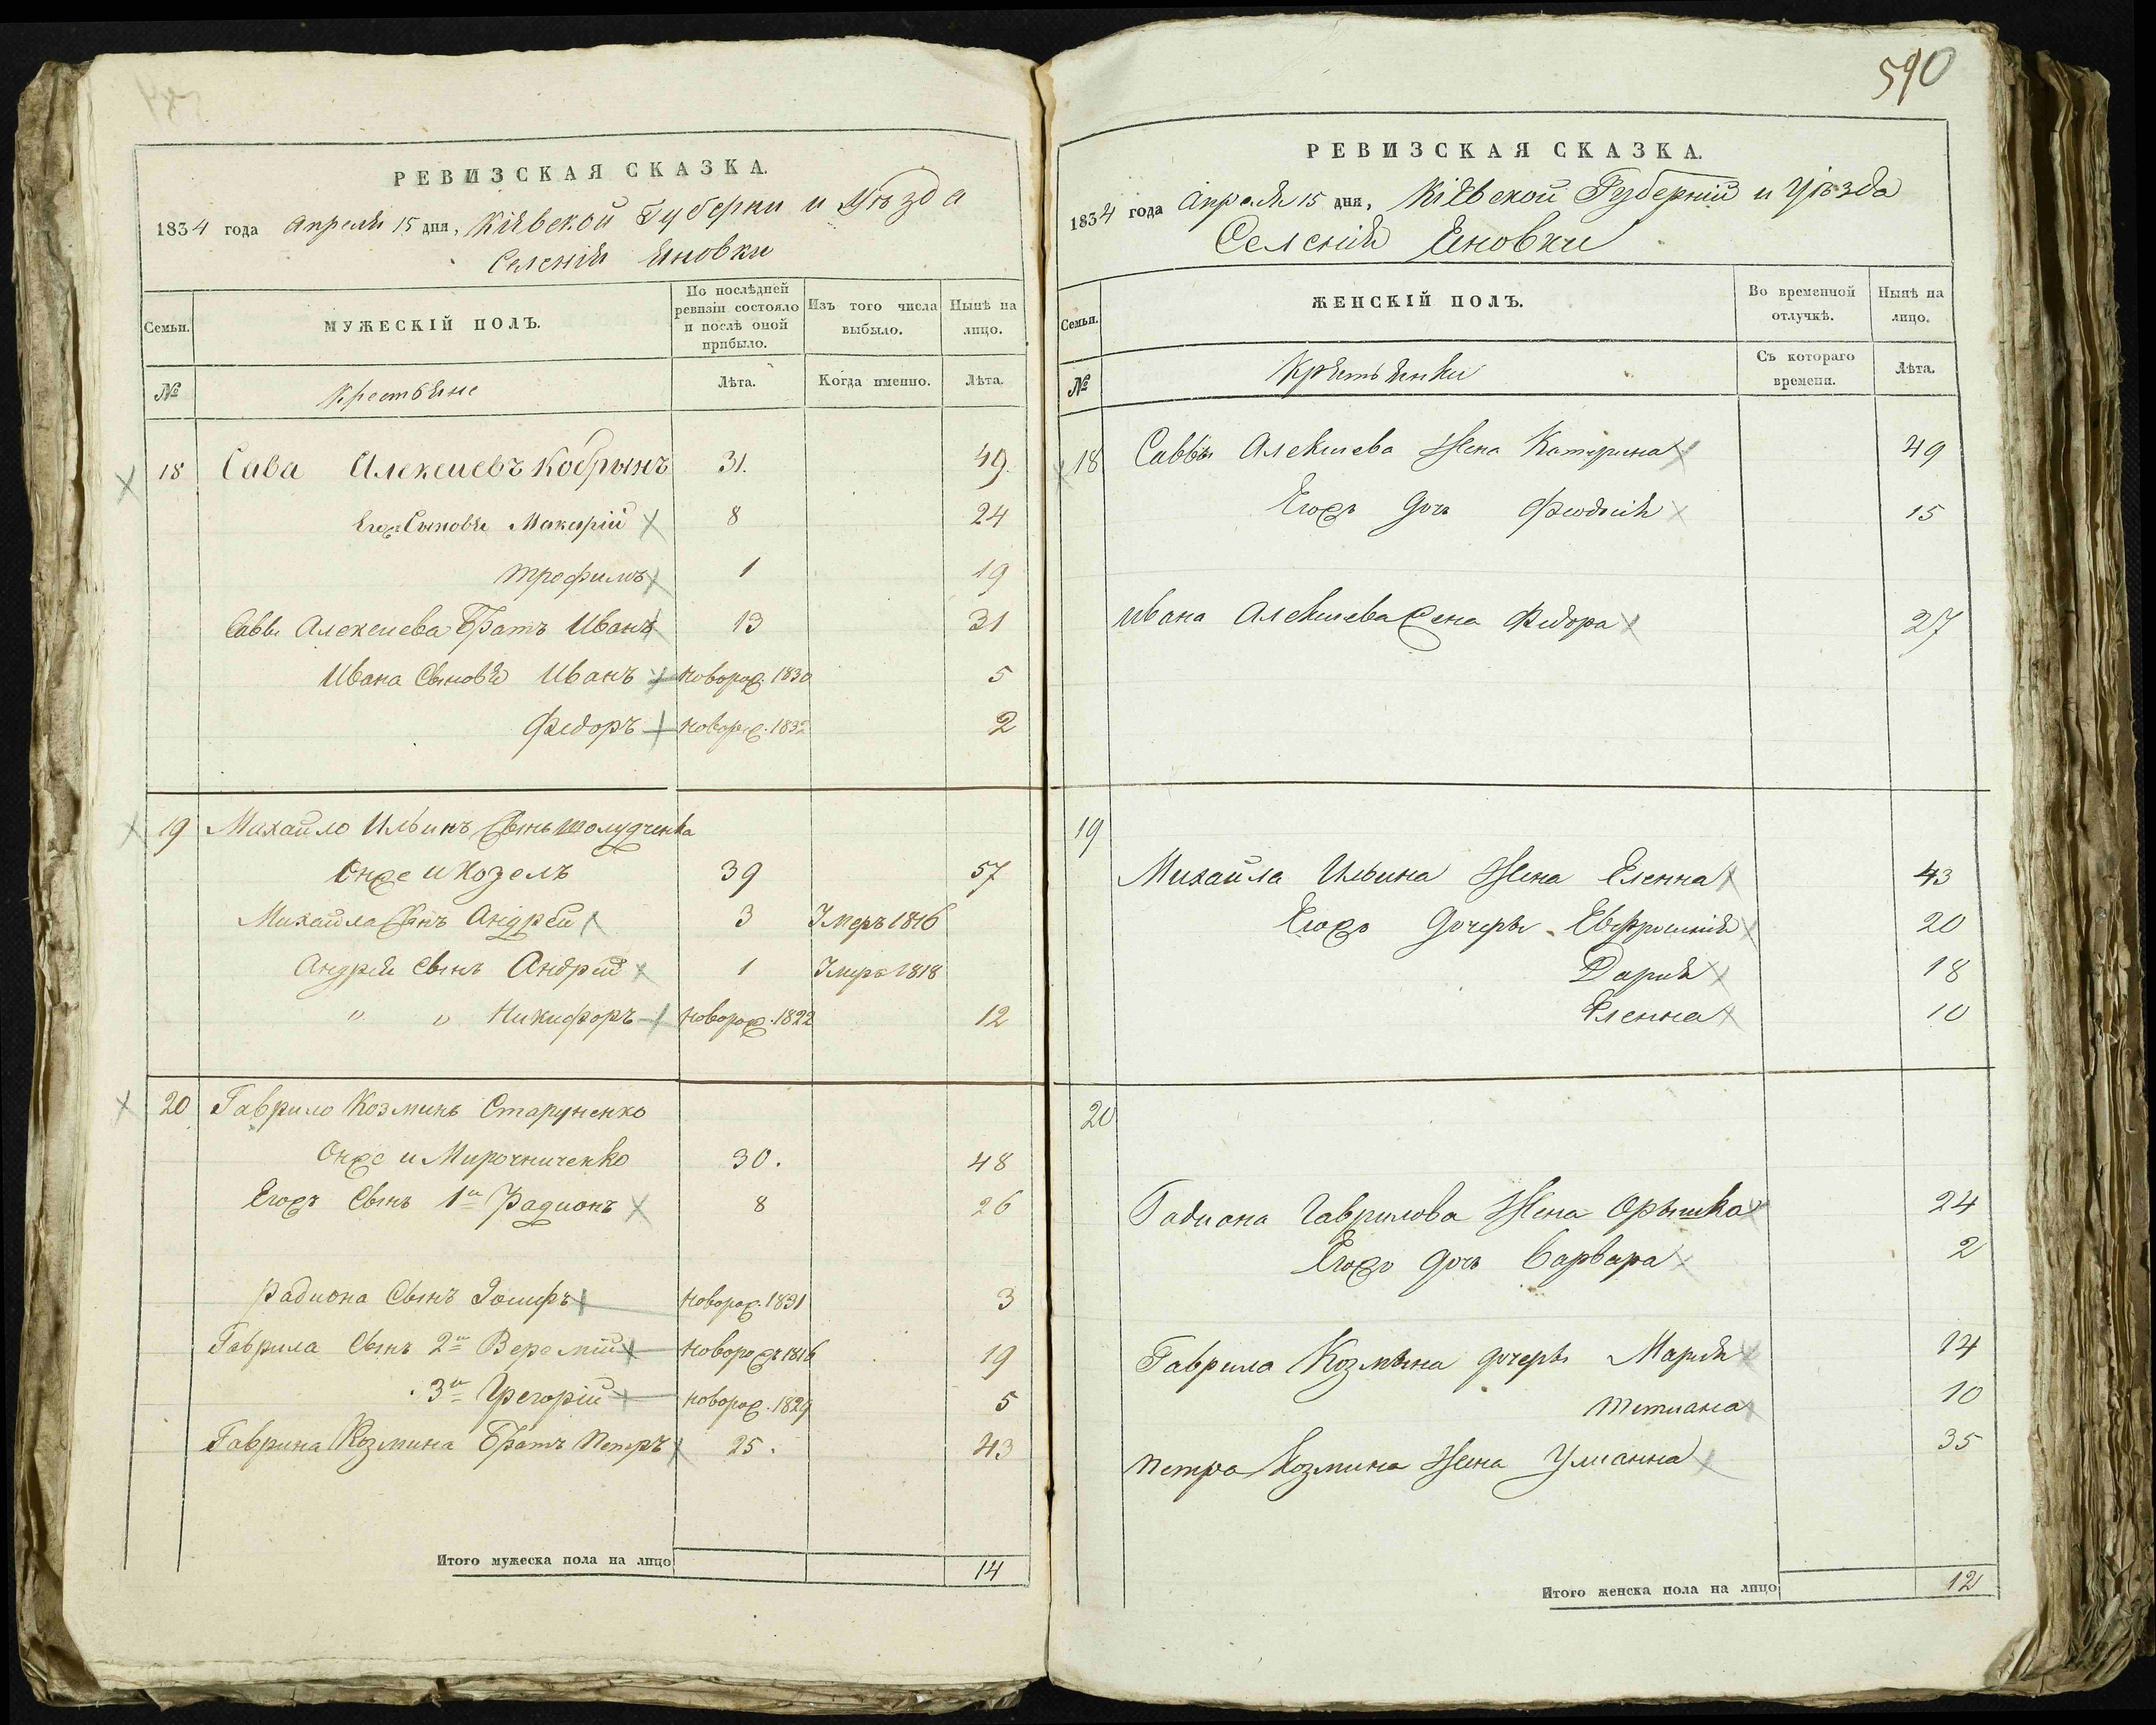 РЕВИЗСКАЯ СКАЗКА.
1834 года Апреля 15 дня, Кіевской Губерни и Уѣзда
Селенія Яновки
Семьи.
МУЖЕСКІЙ ПОЛЪ.
По послѣдней ревизіи состояло и послѣ оной прибыло.
Изъ того числа выбыло.
Нынѣ на лицо.
№
Крестьяне
Лѣта.
Когда именно.
Лѣта.
18 Сава Алексиевъ Кобрынъ 31. 49.
Егожъ Сыновья Макарій 8 24
Трофимъ 1 19
Саввы Алексиева Братъ Иванъ 13 31
Ивана Сыновья Иванъ новорож. 1830 5
Федоръ новорож. 1832 2
19 Михайло Ильинъ Сынъ
Онже и Козелъ 39 57
Михайла Сынъ Андрей 3 Умеръ 1816
Андрей Сынъ Андрій 1 Умеръ 1818
" " Никифоръ новорож. 1822 12
20 Гаврило Козминъ
Онже и Мирочниченко 30. 48
Егожъ Сынъ 1й Радионъ 8 26
Радиона Сынъ новорож. 1831 3
Гаврила Сынъ 2й Веремій новорожъ 1816 19
3й Грегорій новорож. 1829 5
Гаврила Козмина Братъ Петръ 25. 43
Итого мужеска пола на лицо 14
590
РЕВИЗСКАЯ СКАЗКА.
1834 года Апреля 15 дня, Кіевской Губерніи и Уѣзда
Селенія Яновки
Семьи.
ЖЕНСКІЙ ПОЛЪ.
Во временной отлучкѣ.
Нынѣ на лицо.
№
Крѣстьянки
Съ котораго времени.
Лѣта.
18 Саввы Алексиева Жена Катерина 49
Егожъ дочь Феодосія 15
Ивана Алексиева жена Федора 27
19
Михайла Ильина Жена Еленна 43
Егожъ Дочеры Евфросинія 20
Дария 18
Еленна 10
20
Радиона Гаврилова Жена Орышка 24
Егожъ дочь Варвара 2
Гаврила Козмина дочеры Мария 14
Тетиана 10
Петра Козмина Жена Улианна 35
Итого женска пола на лицо 12